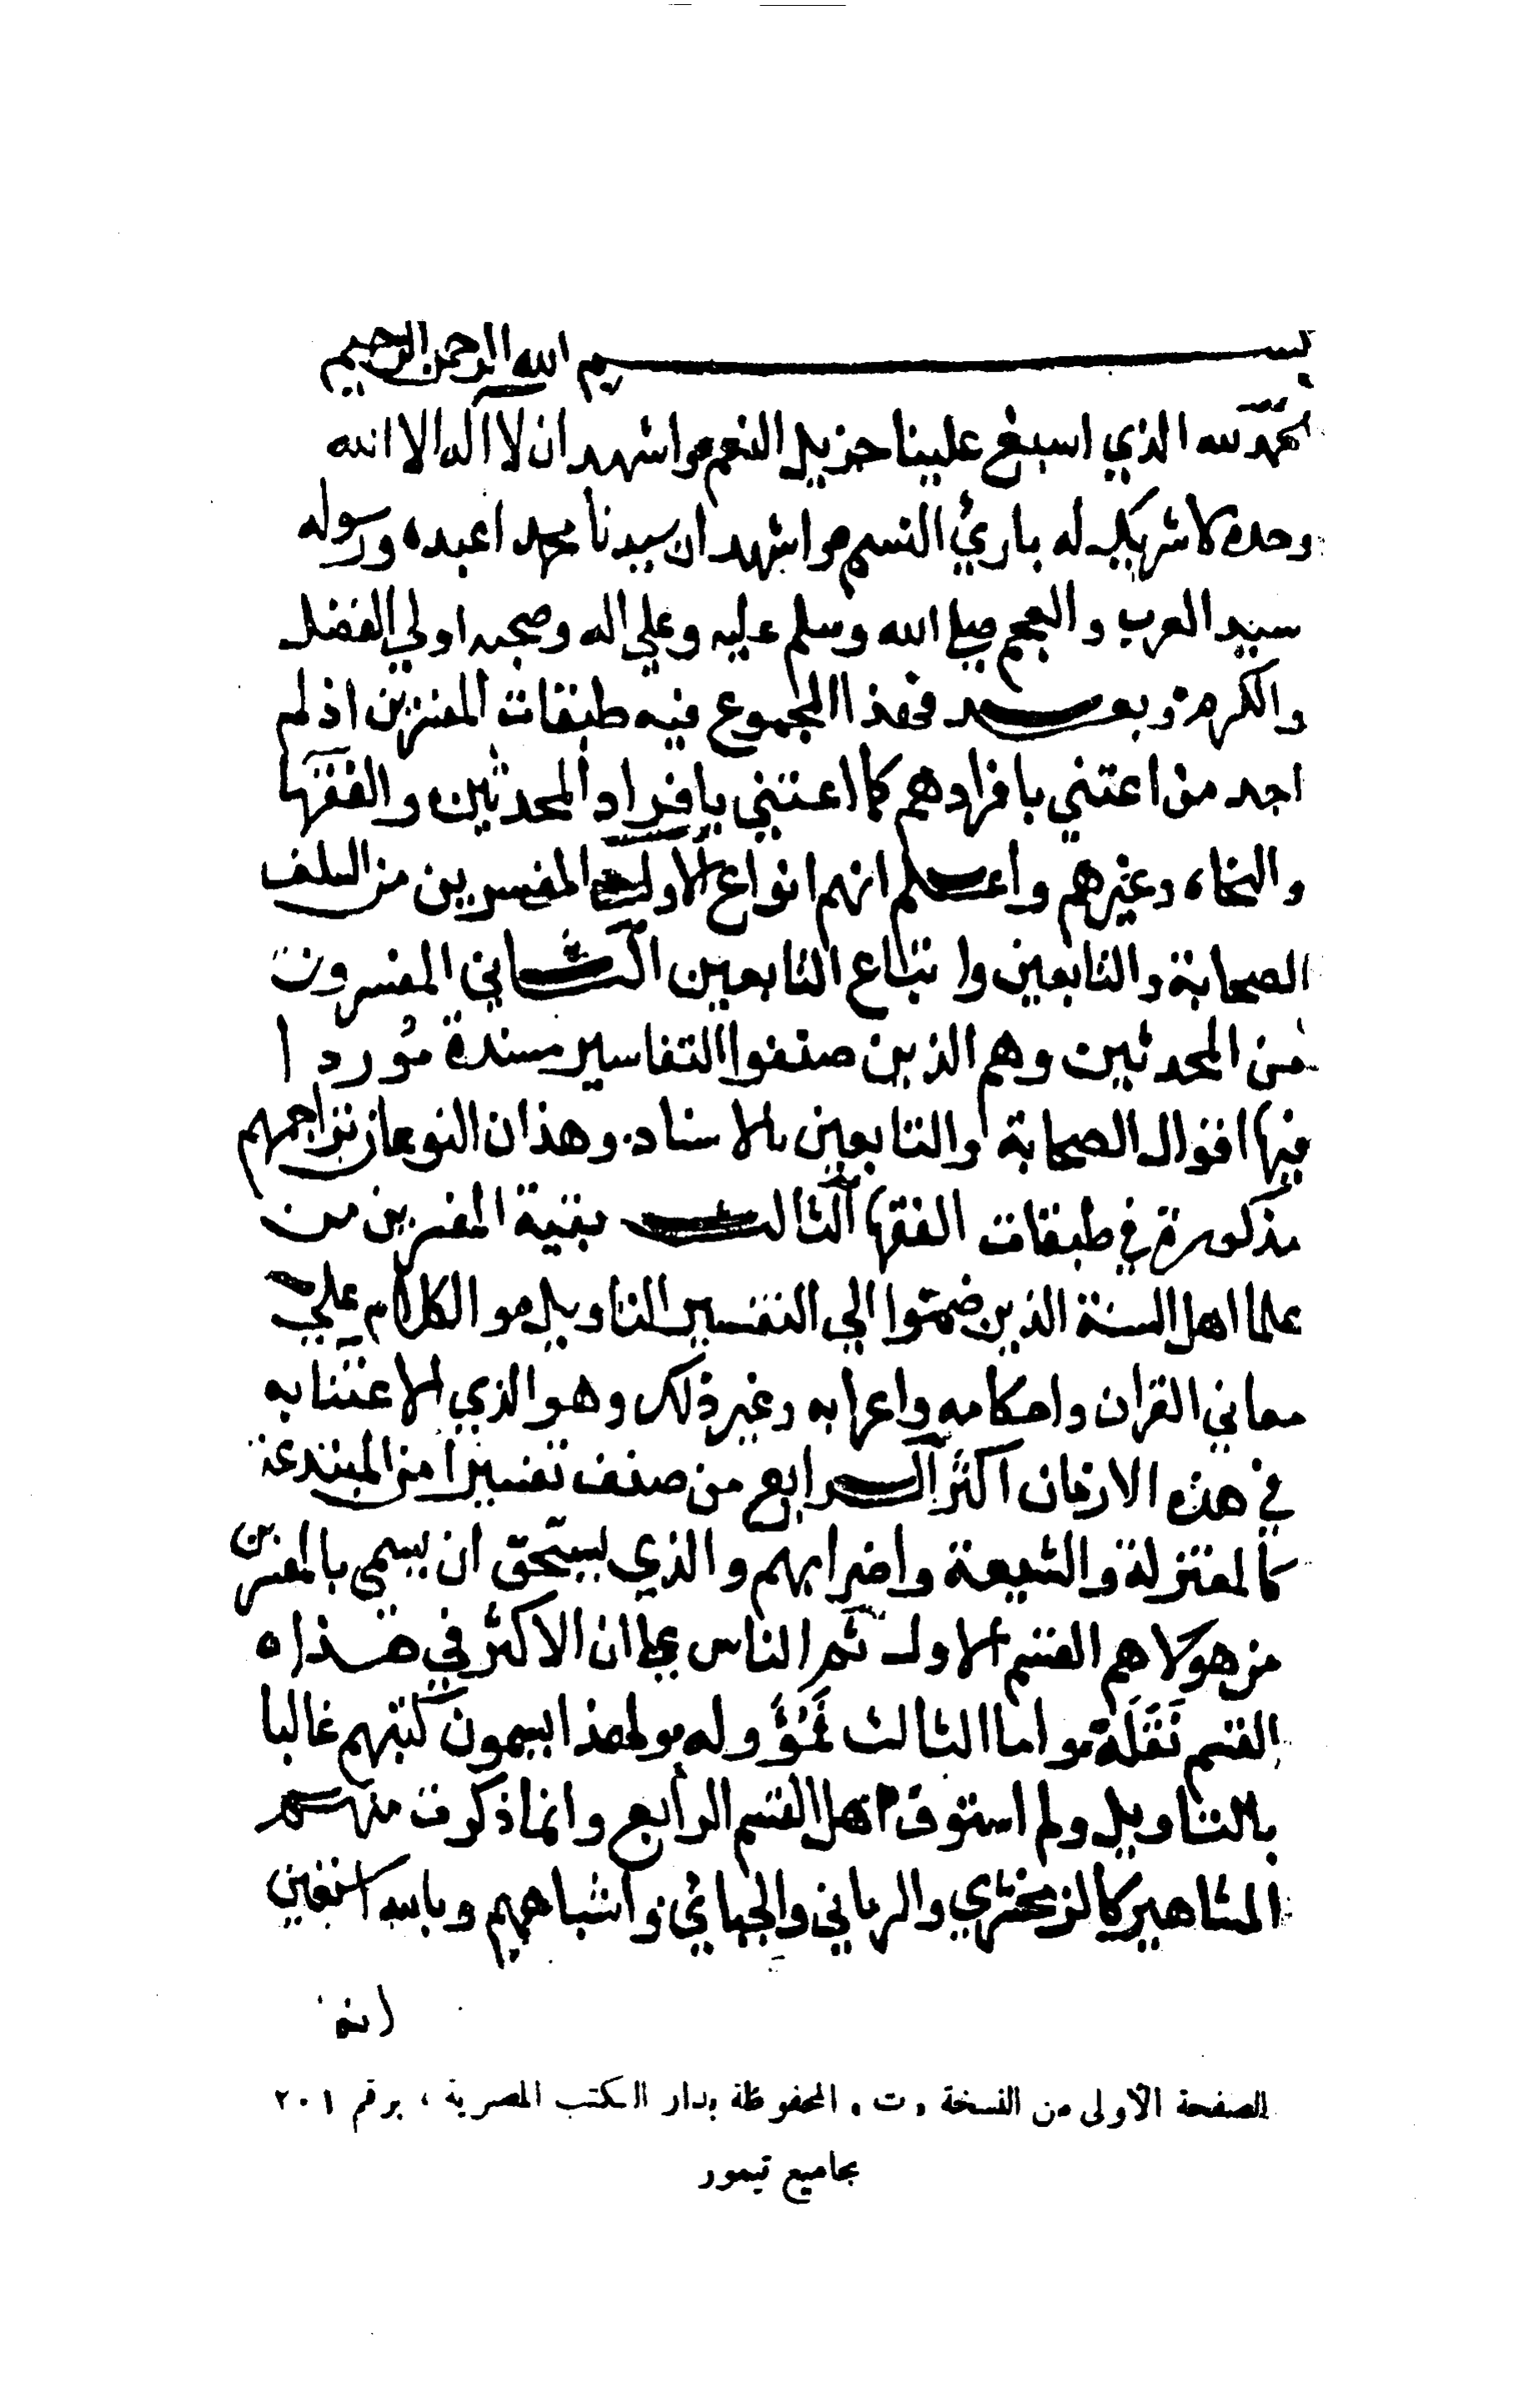 بسم الله الرحمن الرحيم
الحمد لله الذي اسبغ علينا جزيل النعم واشهد ان لا اله الا الله
وحده لا شريك له بارئ النسم واشهد ان سيدنا محمدا عبده ورسوله
سيد العرب والعجم صلي الله وسلم عليه وعلي اله وصحبه اولي الفضل
والكرم وبعد فهذا المجموع فيه طبقات المفسرين اذ لم
اجد من اعتني بافرادهم كما اعتني بافراد المحدثين والفقها
والنحاه وغيرهم واعلم انهم انواع الاول المفسرين من السلف
الصحابة والتابعين واتباع التابعين الثاني المفسرون
من المحدثين وهم الذين صنفوا التفاسير مسندة مورد ا
فيها اقوال الصحابة والتابعين بالاسناد وهذان النوعان تراجمهم
مذكورة في طبقات الفقها الثالث بقية المفسرين من
علما اهل السنة الذين ضموا الي التفسير التاويل والكلام علي
معاني القران واحكامه واعرابه وغير ذلك وهو الذي الاعتنا به
في هذه الازمان اكثر الرابع من صنف تفسيرا من المبتدعة
كالمعتزلة والشيعة واضرابهم والذي يستحق ان يسمي بالمفسرين
من هولا هم القسم الاول ثم الناس علي ان الاكثر في هذا
القسم نقلة واما الثالث فمؤوله ولهذا يسمون كتبهم غالبا
بالتاويل ولم استوف اهل القسم الرابع وانما ذكرت منهم
المشاهير كالزمخشري والرماني والجبائي واشباههم وبالله استعين
الصفحة الأولى من النسخة «ت» المحفوظة بدار الكتب المصرية ، برقم ٢٠١
مجاميع تيمور